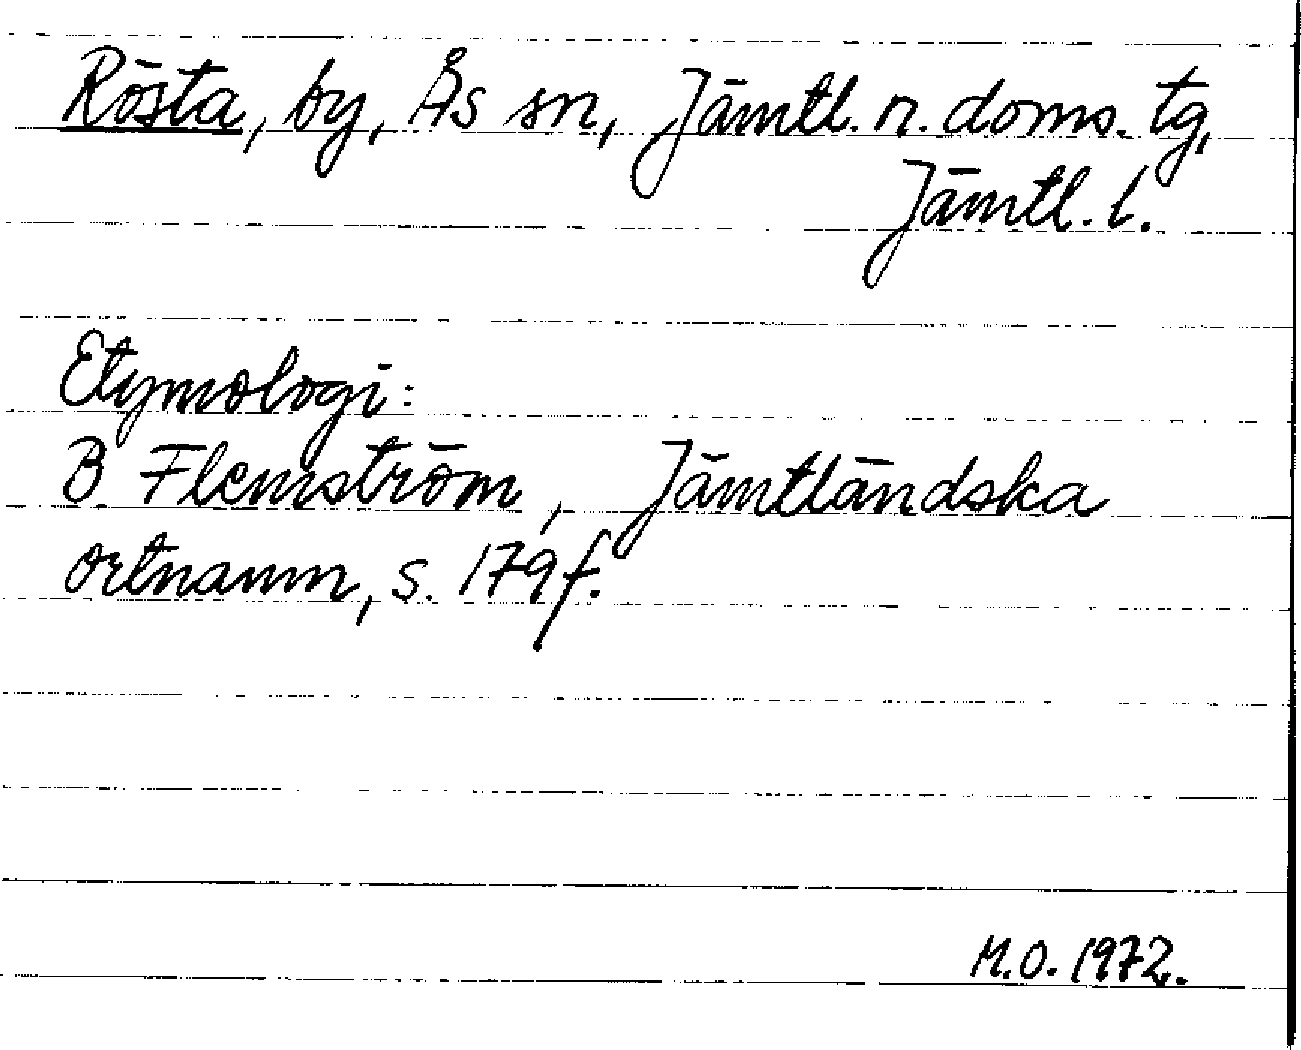 Rösta, by, Ås sn, Jämtl. n. doms. tg,
Jämtl. l.
Etymologi:
B. Flemström, Jämtländska
ortnamn, s. 179 f.
M.O. 1972.